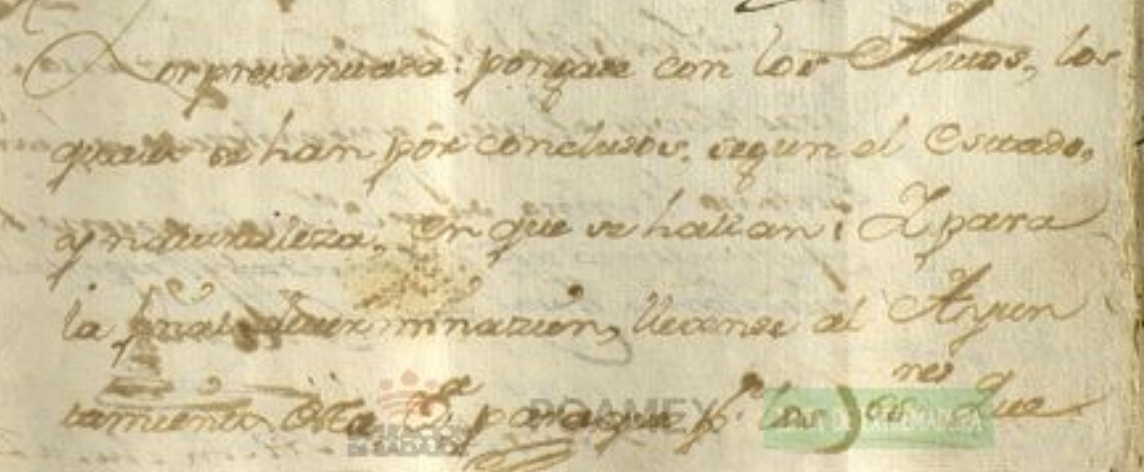 Por presentada: pongase con los Autos, los
quales se han por conclusos, segun el estado,
y naturaleza, en que se hallan; Y para
la final determinazion, llevense al Ayun
tamiento esta para que p.r los S.res que